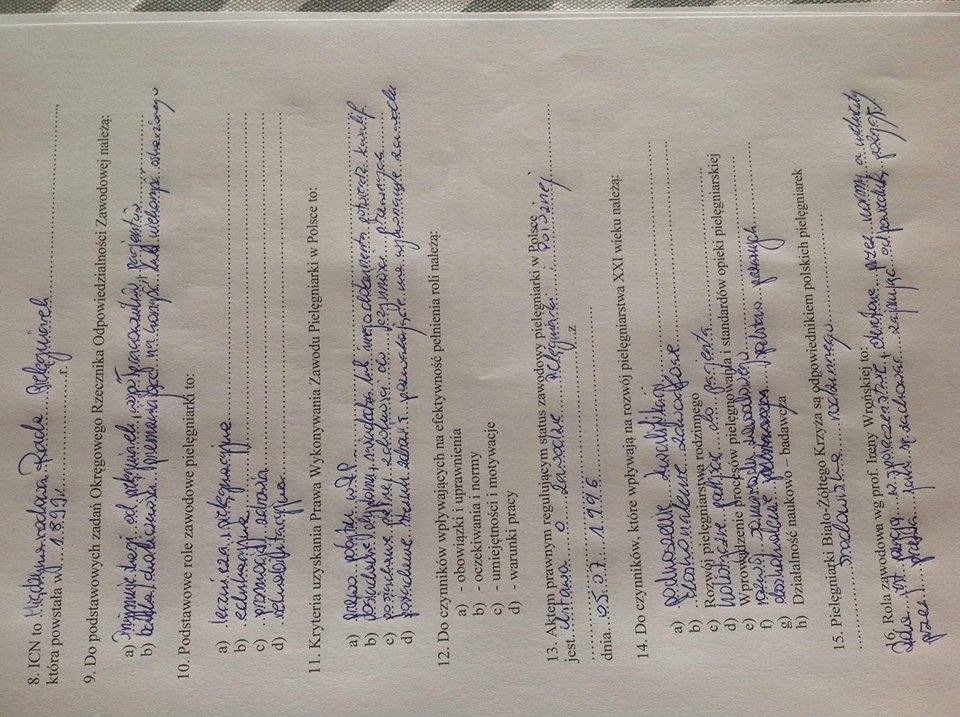 8. ICN to Międzynarodowa Rada Pielęgniarek
która powstała w 1899 r.
9. Do podstawowych zadań Okręgowego Rzecznika Odpowiedzialności Zawodowej należą:
a) przyjmuje skargi od pielęgniarek, współpracowników, pacjentów
b) bada, dochodzenia,
10. Podstawowe role zawodowe pielęgniarki to:
a) lecznicza i pielęgnacyjna
b) edukacyjna
c) promocja zdrowia
d) rehabilitacyjna
11. Kryteria uzyskania Prawa Wykonywania Zawodu Pielęgniarki w Polsce to:
a) prawo pobytu w RP
b) posiadanie dyplomu, świadectwa lub innego dokumentu potwierdz. kwalif.
c) posiadanie pełnej zdolności do czynności prawnych
d) posiadanie stanu zdrowia pozwalającego na wykonanie zawodu
12. Do czynników wpływających na efektywność pełnienia roli należą:
a) - obowiązki i uprawnienia
b) - oczekiwania i normy
c) - umiejętności i motywacje
d) - warunki pracy
13. Aktem prawnym regulującym status zawodowy pielęgniarki w Polsce
jest ustawa o zawodzie pielęgniarki i położnej z
dnia 05.07.1996
14. Do czynników, które wpływają na rozwój pielęgniarstwa XXI wieku należą:
a) podnoszenie kwalifikacji
b) doskonalenie zawodowe
c) Rozwój pielęgniarstwa rodzinnego
d) holistyczne podejście do pacjenta
e) Wprowadzenie procesów pielęgnowania i standardów opieki pielęgniarskiej
f) rozwój samorządu zawodowego
g) doskonalenie podstaw prawnych
h) Działalność naukowo – badawcza
15. Pielęgniarki Biało-Żółtego Krzyża są odpowiednikiem polskich pielęgniarek
środowiska rodzinnego
16. Rola zawodowa wg prof. Ireny Wrońskiej to:
pozycję w społeczeństwie, określone przez normy a